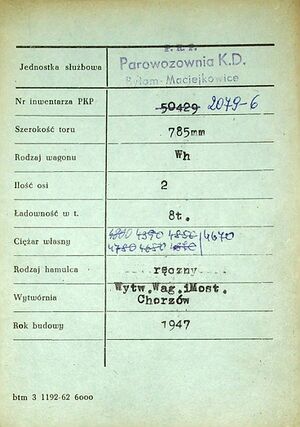 P.K.P.
Jednostka służbowa Parowozownia K.D.
Bytom-Maciejkowice
Nr inwentarza PKP 50429 2079-6
Szerokość toru 785mm
Rodzaj wagonu Wh
Ilość osi 2
Ładowność w t. 8t.
Ciężar własny 4390 4850 4670
4780 4650
Rodzaj hamulca ręczny
Wytwórnia Wytw.Wag.iMost.
Chorzów
Rok budowy 1947
btm 3 1192-62 6000